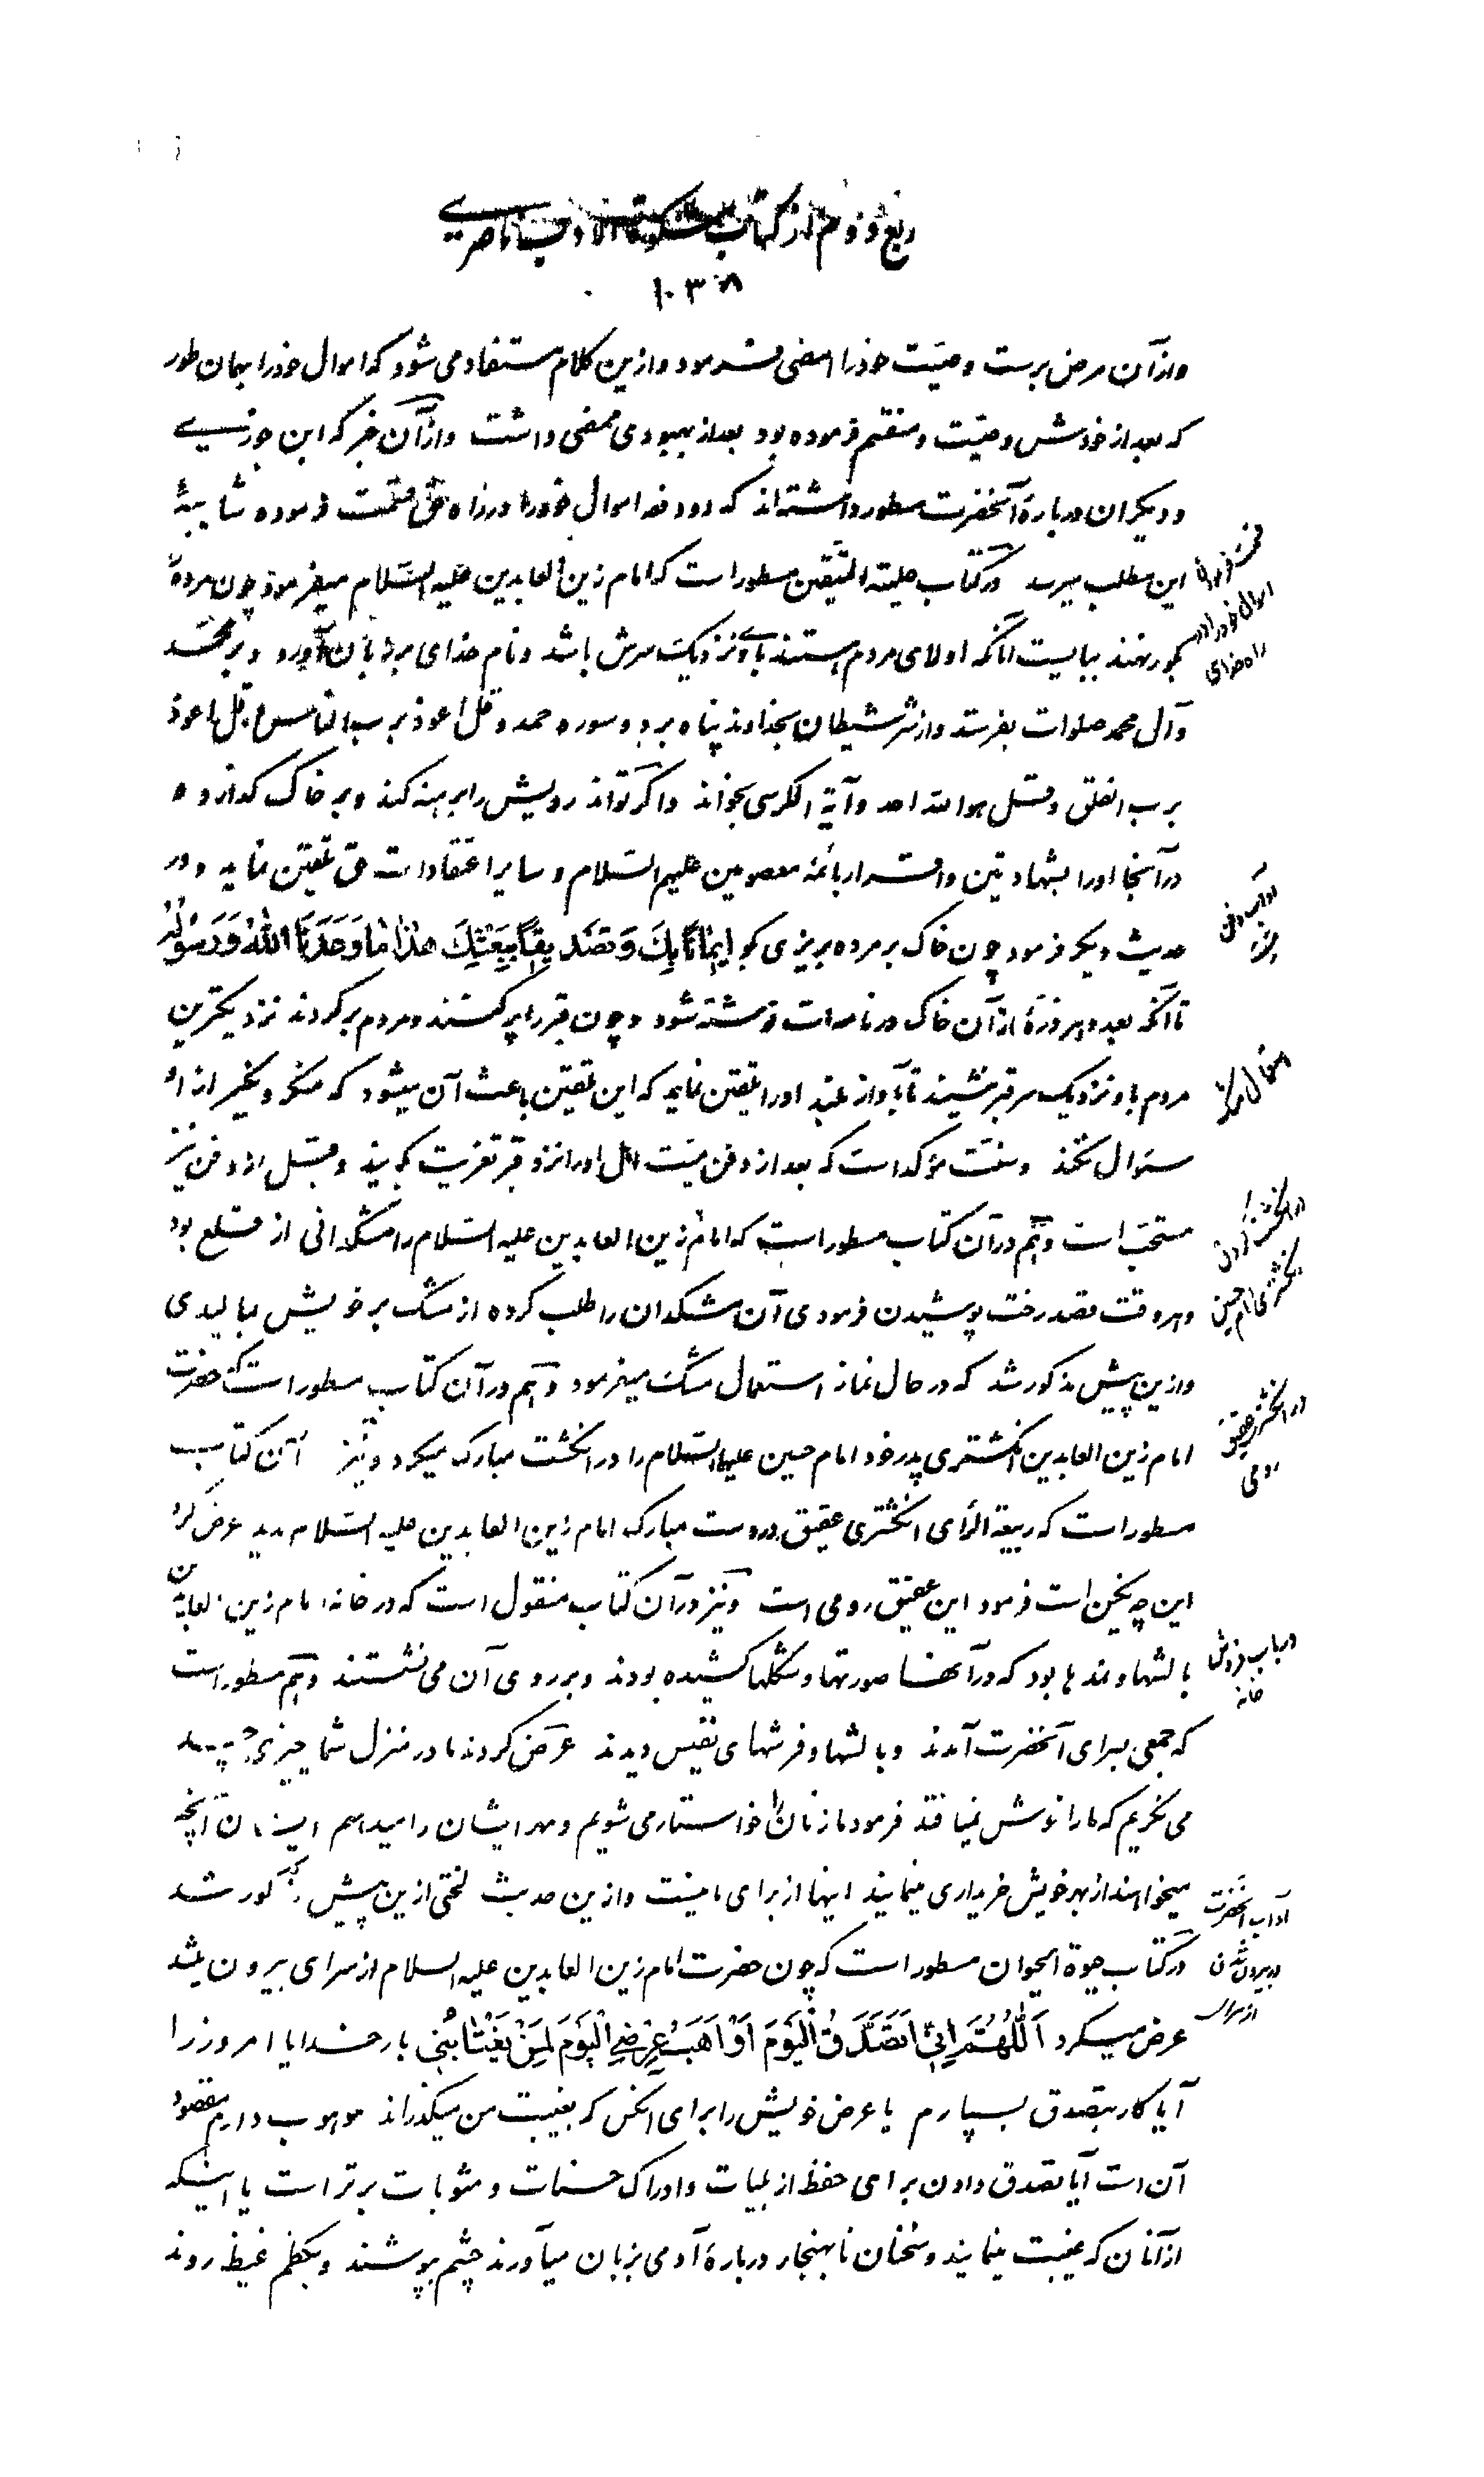 ربع دوم از کتاب مشکوة الادب ناصری
۱۰۳۸
و از آن مرض برست وصیت خود را امضی فرمود و ازین کلام مستفاد می شود که اموال خود را بهمان طور
که بعد از خودش وصیت و منقسم فرموده بود بعد از بهبودی ممضی داشت و از آن خبر که ابن جوزی
و دیگران درباره آنحضرت مسطور داشته اند که دو دفعه اموال خود را در راه حق قسمت فرموده شاید به
این مطلب میرسد در کتاب حلیته المتقین مسطور است که امام زین العابدین علیه السلام میفرمود چون مرده
بگور نهند ببایست آنکه اولای مردم هستند باو نزدیک سرش باشد و نام خدای بر زبان آورد و بر محمد
و آل محمد صلوات بفرستد و از شر شیطان بخداوند پناه برد و سوره حمد و قل اعوذ برب الناس و قل اعوذ
برب الفلق و قل هو الله احد و آیة الکرسی بخواند و اگر تواند رویش را برهنه کند و بر خاک گذارد و
در آنجا او را بشهادتین و اقرار بائمه معصومین علیهم السلام و سایر اعتقادات حق تلقین نماید و در
حدیث دیگر فرمود چون خاک بر مرده بریزی بگو اِیمٰاناً بِكَ وَ تَصْدیقاً بِبَعْثِكَ هٰذٰا مٰا وَعَدَنَا اللّٰهُ وَ رَسُولُهُ
تا آنکه بعدد هر ذرهٔ از آن خاک در نامه ات نوشته شود و چون قبر را پر کنند و مردم برگردند نزدیکترین
مردم باو نزدیک سر قبر بنشیند تا بآواز بلند او را تلقین نماید که این تلقین باعث آن میشود که منکر و نکیر از او
سئوال نکند و سنت مؤکد است که بعد از دفن میت اهل او را نزد قبر تعزیت گویند و قبل از دفن نیز
مستحب است و هم در آن کتاب مسطور است که امام زین العابدین علیه السلام را مشکدانی از قلع بود
و هر وقت قصد رخت پوشیدن فرمودی آن مشکدان را طلب کرده از مشک بر خویش بمالیدی
و ازین پیش مذکور شد که در حال نماز استعمال مشک میفرمود و هم در آن کتاب مسطور است که حضرت
امام زین العابدین انگشتری پدر خود امام حسین علیهما السلام را در انگشت مبارک میکرد و نیز آن کتاب
مسطور است که ربیعة الرأی انگشتری عقیق در دست مبارک امام زین العابدین علیه السلام بدید عرض کرد
این چه نگین است فرمود این عقیق رومی است و نیز در آن کتاب منقول است که در خانه امام زین العابدین
بالشها و نمدها بود که در آنها صورتها و شکلها کشیده بودند و بر روی آن می نشستند و هم مسطور است
که جمعی بسرای آنحضرت آمدند و بالشها و فرشهای نفیس دیدند عرض کردند ما در منزل شما چیزی چند
می نگریم که ما را خوش نمیافتد فرمود ما زنان را خواستار می شویم و مهر ایشان را میدهیم ایشان آنچه
میخواهند از بهر خویش خریداری مینمایند اینها از برای ما نیست و ازین حدیث لختی ازین پیش مذکور شد
در کتاب حیوة الحیوان مسطور است که چون حضرت امام زین العابدین علیه السلام از سرای بیرون شد
عرض میکرد اَللّٰهُمَّ اِنّی اَتَصَدَّقُ الْیَوْمَ اَوْ اَهَبُ عِرْضِی الْیَوْمَ لِمَنْ یَغْتٰابُنی بار خدایا امروز را
آیا کار بتصدق بسپارم یا عرض خویش را برای آنکس که بغیبت من میگذراند موهوب دارم مقصود
آن است آیا تصدق دادن برای حفظ از بلیات و ادراک حسنات و مثوبات برتر است یا اینکه
از آنان که غیبت مینمایند و سخنان نابهنجار درباره آدمی بزبان میآورند چشم بپوشند و بکظم غیظ روند
قسمت فرمودن
اموال خود را در
راه خدای
آداب دفن
انگشتری امام حسین
در انگشتر عقیق
رومی
در باب فروش
خانه
آداب آنحضرت
در بیرون شدن
از سرای